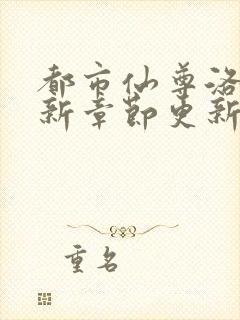 都市仙尊洛
新章节更新
重名